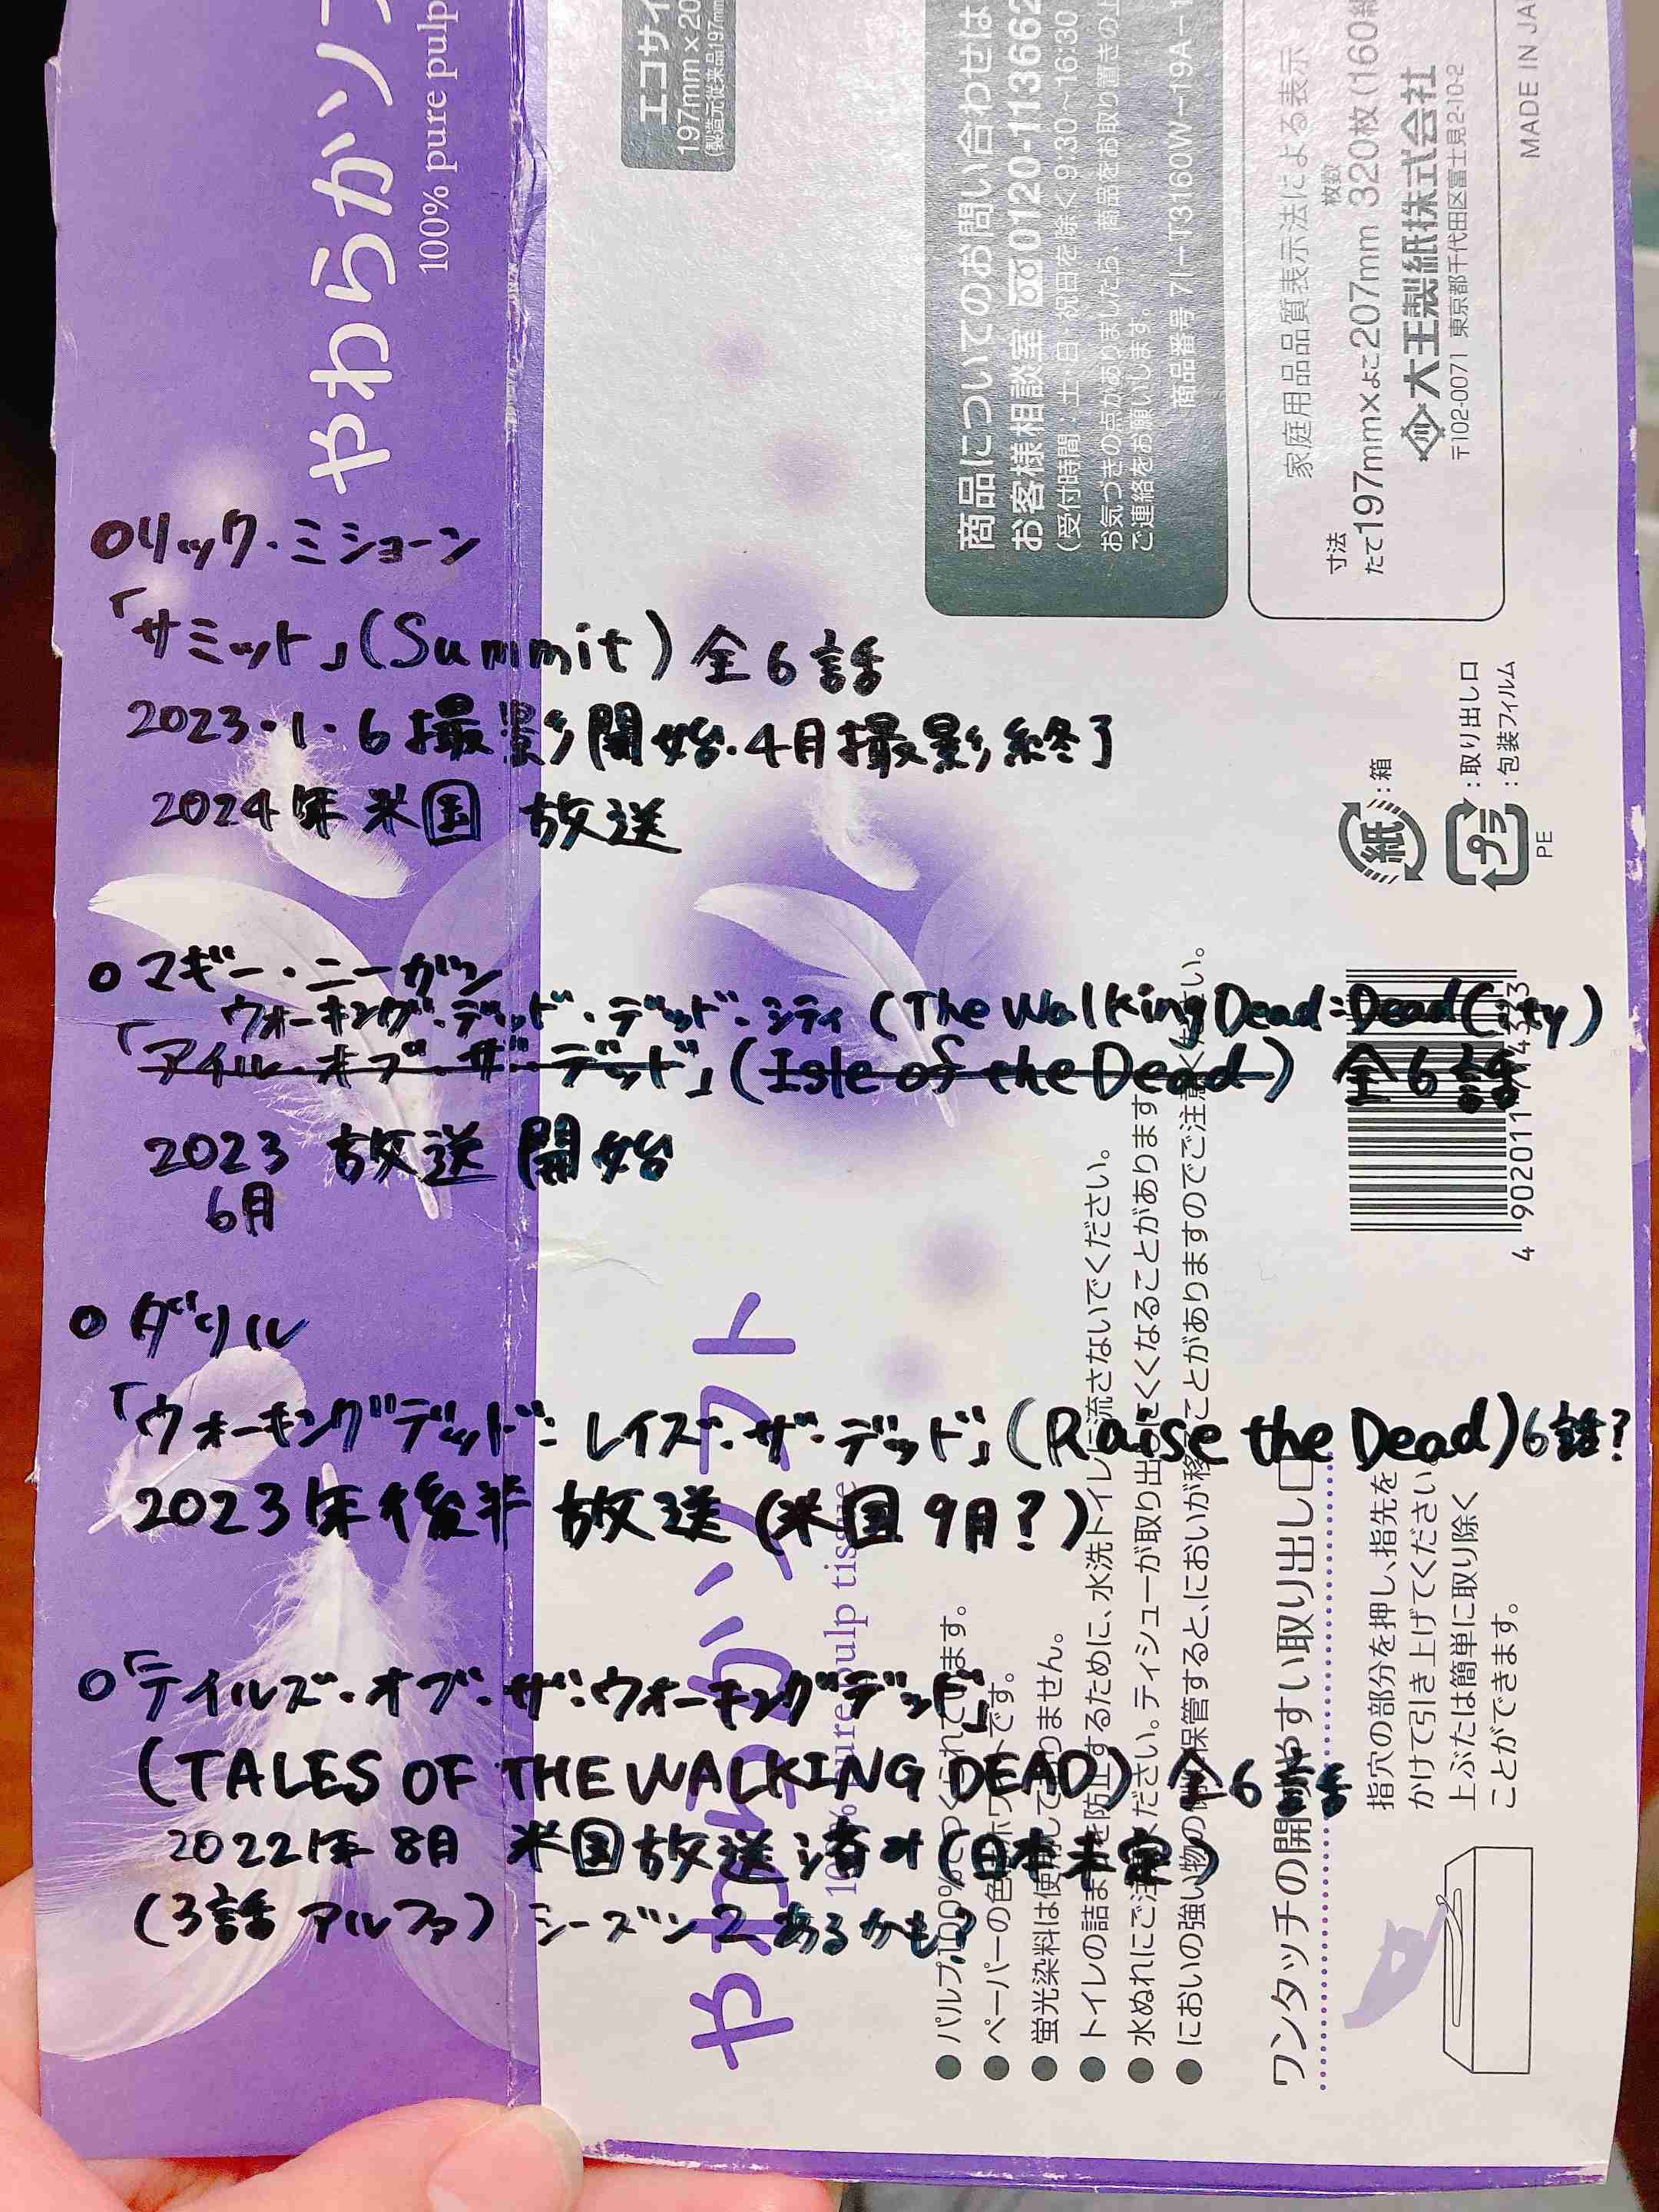 ○リック・ミショーン
「サミット」(Summit)全6話
2023・1・6撮影開始・4月撮影終了
2024年米国放送
○マギー・ニーガン
ウォーキング・デッド・デッド・シティ(The Walking Dead:Dead City)
「アイル・オブ・ザ・デッド」(Isle of the Dead) 全6話
2023 放送開始
6月
○ダリル
「ウォーキングデッド:レイズ・ザ・デッド」(Raise the Dead)6話?
2023年後半放送(米国9月?)
○「テイルズ・オブ・ザ・ウォーキングデッド」
(TALES OF THE WALKING DEAD)全6話
2022年8月 米国放送済み(日本未定)
(3話アルファ)シーズン2あるかも?
100% pure pulp
エコサイ
197mm×20
(製造元従来品197mm
商品についてのお問い合わせは
お客様相談室 0120-113662
(受付時間:土・日・祝日を除く9:30~16:30
お気づきの点がありましたら、商品をお取り置きの上
ご連絡をお願いします。
商品番号 7I-T3160W-19A-1
家庭用品品質表示法による表示
寸法 枚数
たて197mm×よこ207mm 320枚(160組
大王製紙株式会社
〒102-0071 東京都千代田区富士見2-10-2
MADE IN JA
紙 :箱
プラ :取り出し口
:包装フィルム
PE
やわらかソフト
100% pure pulp tissue
●パルプ100%でつくられています。
●ペーパーの色はホワイトです。
●蛍光染料は使用しておりません。
●トイレの詰まりを防止するために、水洗トイレに流さないでください。
●水ぬれにご注意ください。ティシューが取り出しにくくなることがあります。
●においの強い物の側に保管すると、においが移ることがありますのでご注意ください。
ワンタッチの開けやすい取り出し口
指穴の部分を押し、指先を
かけて引き上げてください。
上ぶたは簡単に取り除く
ことができます。